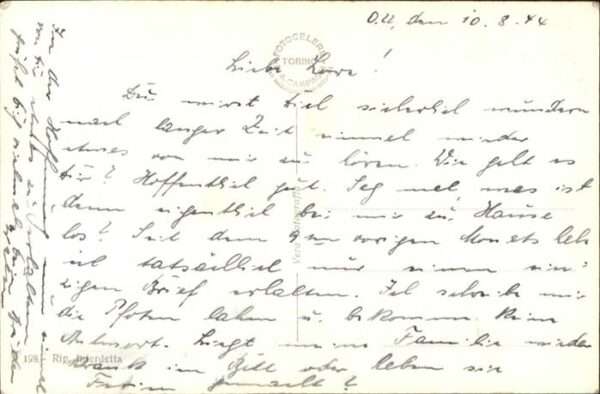 O.U., den 10.8.44
FOTOCELERE
TORINO
Liebe Lore!
Du wirst dich sicherlich wundern
nach langer Zeit einmal wieder
etwas von mir zu hören. Wie geht es
Dir? Hoffentlich gut. Sag mal, was ist
denn eigentlich bei mir zu Hause
los? Seit dem 9ten vorigen Monats habe
ich tatsächlich nur einen ein-
zigen Brief erhalten. Ich schreibe mir
die Pfoten lahm u. bekomme keine
Antwort. Liegt meine Familie wieder
krank im Bett oder haben sie
Ferien gemacht?
In der Hoffnung nun einmal
von Dir etwas zu erhalten
grüßt Dich
Vera Fotografia
198 - Rip.